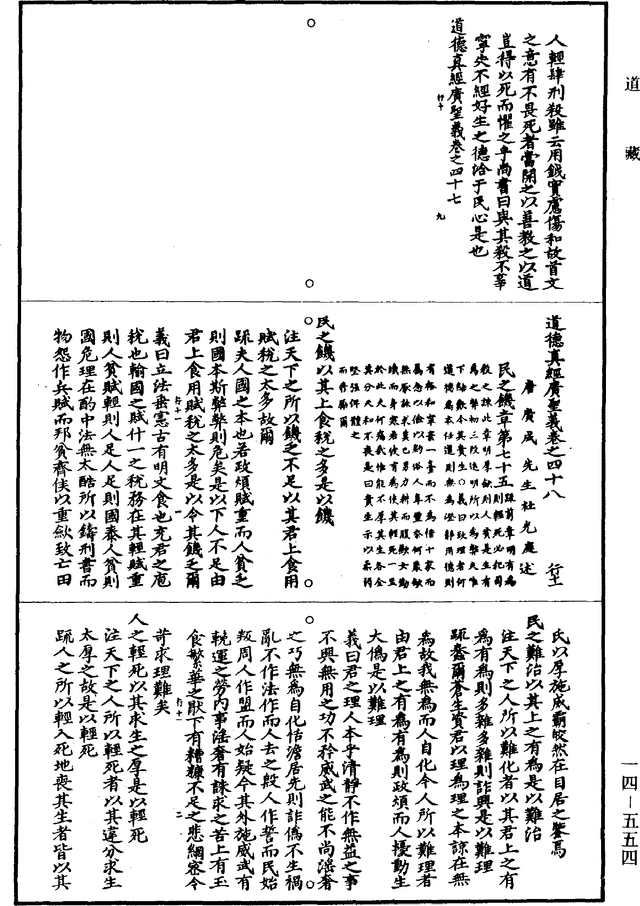 道藏
人輕肆刑殺雖云用鉞實屬傷和故首文
之意有不畏死者當開之以善教之以道
豈得以死而懼之乎尚書曰與其殺不辜
寧失不經好生之德洽于民心是也
道德真經廣聖義卷之四十七
行十 九
道德真經廣聖義卷之四十八
唐廣成先生杜光庭述 行十一
民之饑章第七十五
民之饑以其上食稅之多是以饑
注天下之所以饑乏不足以其君上食用
賦稅之太多故爾
疏夫人國之本也若政煩賦重而人貧乏
則國本斯弊弊則危矣是以下人不足由
君上食用賦稅之太多是以令其饑乏爾
行十一 一
義曰立法垂憲古有明文食也充君之庖
稅也輸國之賦什一之稅務在其輕賦重
則人貧賦輕則人足人足則國泰人貧則
國危理在酌中法無太酷所以鑄刑書而
物怨作兵賦而邦貧齊侯以重斂致亡田
氏以厚施威霸皎然在目居之鑒焉
民之難治以其上之有為是以難治
注天下之人所以難化者以其君上之有
為有為則多難多難則詐興是以難理
疏蠢爾蒼生資君以理為理之本諒在無
為故我無為而人自化今人所以難理者
由君上之有為有為則政煩而人擾動生
大偽是以難理
義曰君之理人本乎清靜不作無益之事
不興無用之功不矜威武之能不尚淫奢
之巧無為自化恬澹居先則詐偽不生禍
亂不作法作而人去之殷人作誓而民始
叛周人作盟而人始疑今其外施威武有
輓運之勞內事淫奢有誅求之苦上有玉
食繁華之猒下有糟糠不足之悲網密令
行十一 二
苛求理難矣
人之輕死以其求生之厚是以輕死
注天下之人所以輕死者以其違分求生
太厚之故是以輕死
疏人之所以輕入死地喪其生者皆以其
一四—五五四